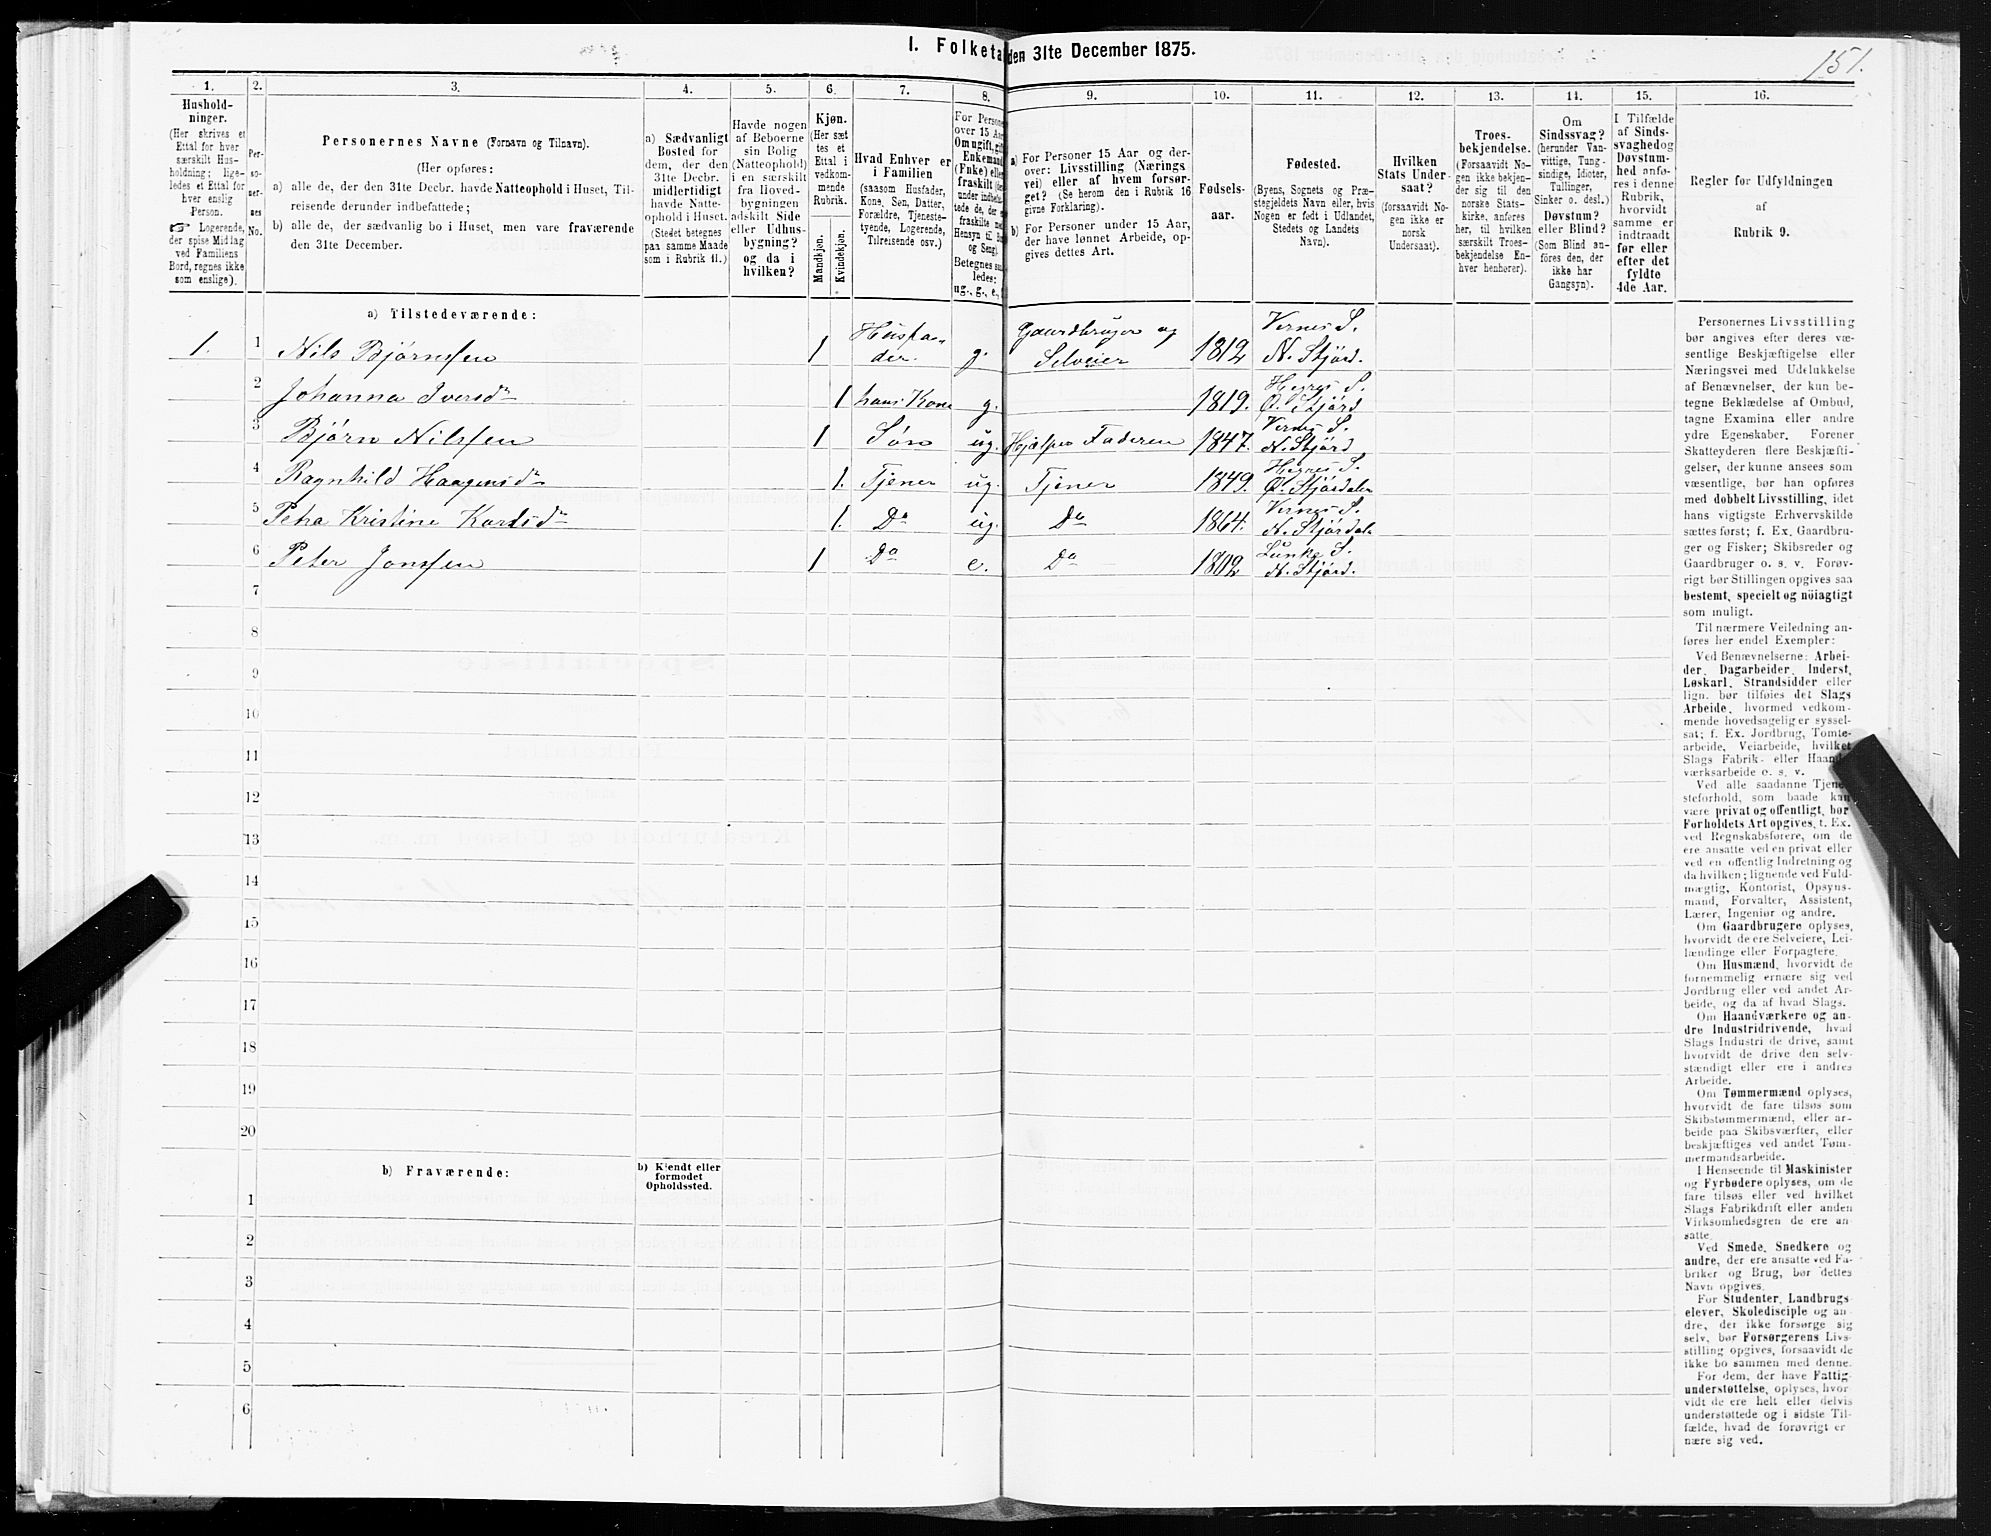 I. Folketa
den 31te December 1875.
151.
1. 2. 3. 4. 5. 6. 7. 8. 9. 10. 11. 12. 13. 14. 15. 16.
Hushold-
ninger.
(Her skrives et
Ettal for hver
særskilt Hus-
holdning; lige-
ledes et Ettal for
hver enslig
Person.
☞ Logerende,
der spise Middag
ved Familiens
Bord, regnes ikke
som enslige).
Per-
so-
ner-
nes
No.
Personernes Navne (Fornavn og Tilnavn).
(Her opføres:
a) alle de, der den 31te Decbr. havde Natteophold i Huset, Til-
reisende derunder indbefattede;
b) alle de, der sædvanlig bo i Huset, men vare fraværende
den 31te December.
a) Sædvanligt
Bosted for
dem, der den
31te Decbr.
midlertidigt
havde Natte-
ophold i Huset.
(Stedet betegnes
paa samme Maade
som i Rubrik 11.)
Havde nogen
af Beboerne
sin Bolig
(Natteophold)
i en særskilt
fra Hoved-
bygningen
adskilt Side
eller Udhus-
bygning?
og da i
hvilken?
Kjøn.
(Her sæt
tes et
Ettal i
vedkom-
mende
Rubrik.
Mandkjøn.
Kvindekjøn.
Hvad Enhver er
i Familien
(saasom Husfader,
Kone, Søn, Datter,
Forældre, Tjeneste-
tyende, Logerende,
Tilreisende osv.)
For Persone
over 15 Aar
Om ugift, gift
Enkemand
(Enke) eller
fraskilt (de
under indbefat-
tede de, der e
fraskilte me
Hensyn til Bo
og Seng).
Betegnes saa
ledes:
ug., g., e.,
a) For Personer 15 Aar og der-
over: Livsstilling (Nærings
vei) eller af hvem forsør-
get? (Se herom den i Rubrik 16
givne Forklaring).
b) For Personer under 15 Aar,
der have lønnet Arbeide, op-
gives dettes Art.
Fødsels-
aar.
Fødested.
(Byens, Sognets og Præ-
stegjeldets Navn eller, hvis
Nogen er født i Udlandet,
Stedets og Landets
Navn).
Hvilken
Stats Under-
saat?
(forsaavidt No-
gen ikke er
norsk
Undersaat).
Troes-
bekjendelse.
(Forsaavidt No-
gen ikke bekjen-
der sig til den
norske Stats-
kirke, anføres
her, til hvilken
særskilt Troes-
bekjendelse En-
hver henhører).
Om
Sindssvag?
(herunder Van-
vittige, Tung-
sindige, Idioter,
Tullinger,
Sinker o. desl.)
Døvstum?
eller Blind?
(Som Blind an-
føres den, der
ikke har
Gangsyn).
I Tilfælde
af Sinds-
svaghed og
Døvstum-
hed anfø-
res i denne
Rubrik,
hvorvidt
samme er
indtraadt
før eller
efter det
fyldte
4de Aar.
Regler for Udfyldningen
af
Rubrik 9.
a) Tilstedeværende:
1. 1 Nils Bjørnssen 1 Husfa-der. g. Gaardbruger og Selveier 1812 Vernes S. N. Stjørd.
2 Johanna Iversdr 1 hans Kone g. 1819. Hegres S. Ø. Stjørd
3 Bjørn Nilssen 1 Søn ug. Hjælper Faderen 1847. Vernes S. N. Stjørd
4 Ragnhild Haagensdr 1. Tjener ug. Tjener 1849. Hegres S. Ø. Stjørdalen
5 Petra Kristine Karlsdr 1. Do ug. Do 1864. Vernes S. N. Stjørdal
6 Peter Jonssen 1 Do e. Do 1802 Lunke S. N. Stjørd.
7
8
9
10
11
12
13
14
15
16
17
18
19
20
b) Fraværende:
b) Kjendt eller
formodet
Opholdssted.
1
2
3
4
5
6
Personernes Livsstilling
bør angives efter deres væ-
sentlige Beskjæftigelse eller
Næringsvei med Udelukkelse
af Benævnelser, der kun be-
tegne Beklædelse af Ombud,
tagne Examina eller andre
ydre Egenskaber. Forener
Skatteyderen flere Beskjæfti-
gelser, der kunne ansees som
væsentlige, bør han opføres
med dobbelt Livsstilling, idet
hans vigtigste Erhvervskilde
sættes først; f. Ex. Gaardbru-
ger og Fisker; Skibsreder og
Gaardbruger o. s. v. Forøv-
rigt bør Stillingen opgives saa
bestemt, specielt og nöiagtigt
som muligt.
Til nærmere Veiledning an-
føres her endel Exempler:
Ved Benævnelserne: Arbei-
der, Dagarbeider, Inderst,
Løskarl, Strandsidder eller
lign. bør tilføies det Slags
Arbeide, hvormed vedkom-
mende hovedsagelig er syssel-
sat; f. Ex. Jordbrug, Tomte-
arbeide, Veiarbeide, hvilket
Slags Fabrik- eller Haand-
værksarbeide o. s. v.
Ved alle saadanne Tjene-
steforhold, som baade kan
være privat og offentligt, bør
Forholdets Art opgives, t. Ex.
ved Regnskabsførere, om de
ere ansatte ved en privat eller
ved en offentlig Indretning og
da hvilken; lignende ved Fuld-
mægtig, Kontorist, Opsyns-
mand, Forvalter, Assistent,
Lærer, Ingeniør og andre.
Om Gaardbrugere oplyses,
hvorvidt de ere Selveiere, Lei-
lændinge eller Forpagtere.
Om Husmænd, hvorvidt de
fornemmelig ernære sig ved
Jordbrug eller ved andet Ar-
beide, og da af hvad Slags.
Om Haandværkere og an-
dre Industridrivende, hvad
Slags Industri de drive, samt
hvorvidt de drive den selv-
stændigt eller ere i andres
Arbeide.
Om Tømmermænd oplyses,
hvorvidt de fare tilsøs som
Skibstømmermænd, eller ar-
beide paa Skibsværfter, eller
beskjæftiges ved andet Tøm-
mermandsarbeide.
I Henseende til Maskinister
og Fyrbødere oplyses, om de
fare tilsøs eller ved hvilket
Slags Fabrikdrift eller anden
Virksomhedsgren de ere an-
satte.
Ved Smede, Snedkere og
andre, der ere ansatte ved Fa-
briker og Brug, bør dettes
Navn opgives.
For Studenter, Landbrugs-
elever, Skoledisciple og an-
dre, der ikke forsørge sig
selv, bør Forsørgerens Livs-
stilling opgives, forsaavidt de
ikke bo sammen med denne.
For dem, der have Fattig-
understøttelse, oplyses, hvor-
vidt de ere helt eller delvis
understøttede og i sidste Til-
fælde, hvad de forøvrigt er
nære sig ved.